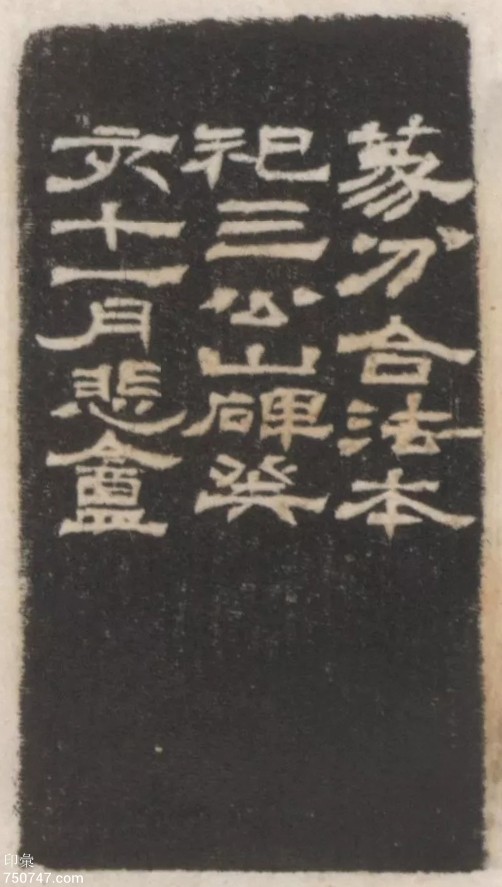 篆分合法本
祀三公山碑癸
亥十一月悲盦
印彙
750747.com